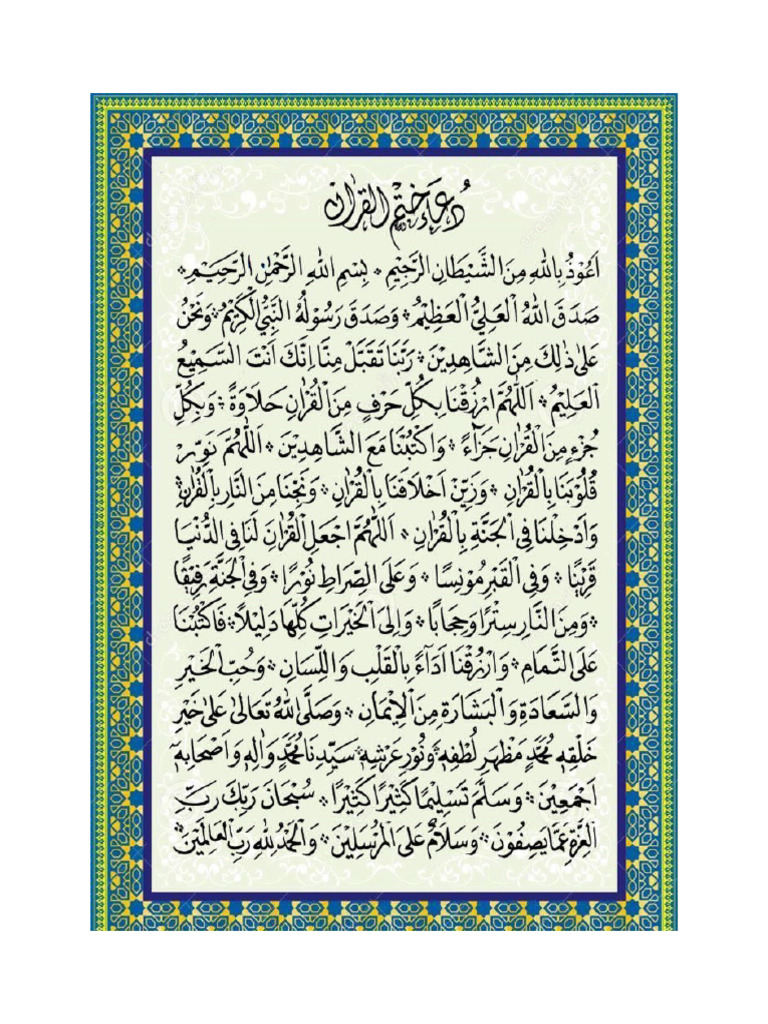 دُعَاءِ خَتْمِ الْقُرْاٰنِ
اَعُوْذُ بِاللهِ مِنَ الشَّيْطَانِ الرَّجِيْمِ * بِسْمِ اللهِ الرَّحْمٰنِ الرَّحِيْمِ *
صَدَقَ اللهُ الْعَلِيُّ الْعَظِيْمُ * وَصَدَقَ رَسُوْلُهُ النَّبِيُّ الْكَرِيْمُ * وَنَحْنُ
عَلٰى ذٰلِكَ مِنَ الشَّاهِدِيْنَ * رَبَّنَا تَقَبَّلْ مِنَّا اِنَّكَ اَنْتَ السَّمِيْعُ
الْعَلِيْمُ * اَللّٰهُمَّ ارْزُقْنَا بِكُلِّ حَرْفٍ مِنَ الْقُرْاٰنِ حَلَاوَةً * وَبِكُلِّ
جُزْءٍ مِنَ الْقُرْاٰنِ جَزَآءً * وَاكْتُبْنَا مَعَ الشَّاهِدِيْنَ * اَللّٰهُمَّ نَوِّرْ
قُلُوْبَنَا بِالْقُرْاٰنِ * وَزَيِّنْ اَخْلَاقَنَا بِالْقُرْاٰنِ * وَنَجِّنَا مِنَ النَّارِ بِالْقُرْاٰنِ *
وَاَدْخِلْنَا فِي الْجَنَّةِ بِالْقُرْاٰنِ * اَللّٰهُمَّ اجْعَلِ الْقُرْاٰنَ لَنَا فِي الدُّنْيَا
قَرِيْنًا * وَفِي الْقَبْرِ مُوْنِسًا * وَعَلَى الصِّرَاطِ نُوْرًا * وَفِي الْجَنَّةِ رَفِيْقًا
* وَمِنَ النَّارِ سِتْرًا وَحِجَابًا * وَاِلَى الْخَيْرَاتِ كُلِّهَا دَلِيْلًا * فَاكْتُبْنَا
عَلَى التَّمَامِ * وَارْزُقْنَا اَدَآءً بِالْقَلْبِ وَاللِّسَانِ * وَحُبِّ الْخَيْرِ
وَالسَّعَادَةِ وَالْبَشَارَةِ مِنَ الْاِيْمَانِ * وَصَلَّى اللهُ تَعَالٰى عَلٰى خَيْرِ
خَلْقِهٖ مُحَمَّدٍ مَظْهَرِ لُطْفِهٖ * وَنُوْرِ عَرْشِهٖ * سَيِّدِنَا مُحَمَّدٍ وَاٰلِهٖ وَاَصْحَابِهٖٓ
اَجْمَعِيْنَ * وَسَلَّمَ تَسْلِيْمًا كَثِيْرًا كَثِيْرًا * سُبْحَانَ رَبِّكَ رَبِّ
الْعِزَّةِ عَمَّا يَصِفُوْنَ * وَسَلَامٌ عَلَى الْمُرْسَلِيْنَ * وَالْحَمْدُ لِلهِ رَبِّ الْعَالَمِيْنَ *